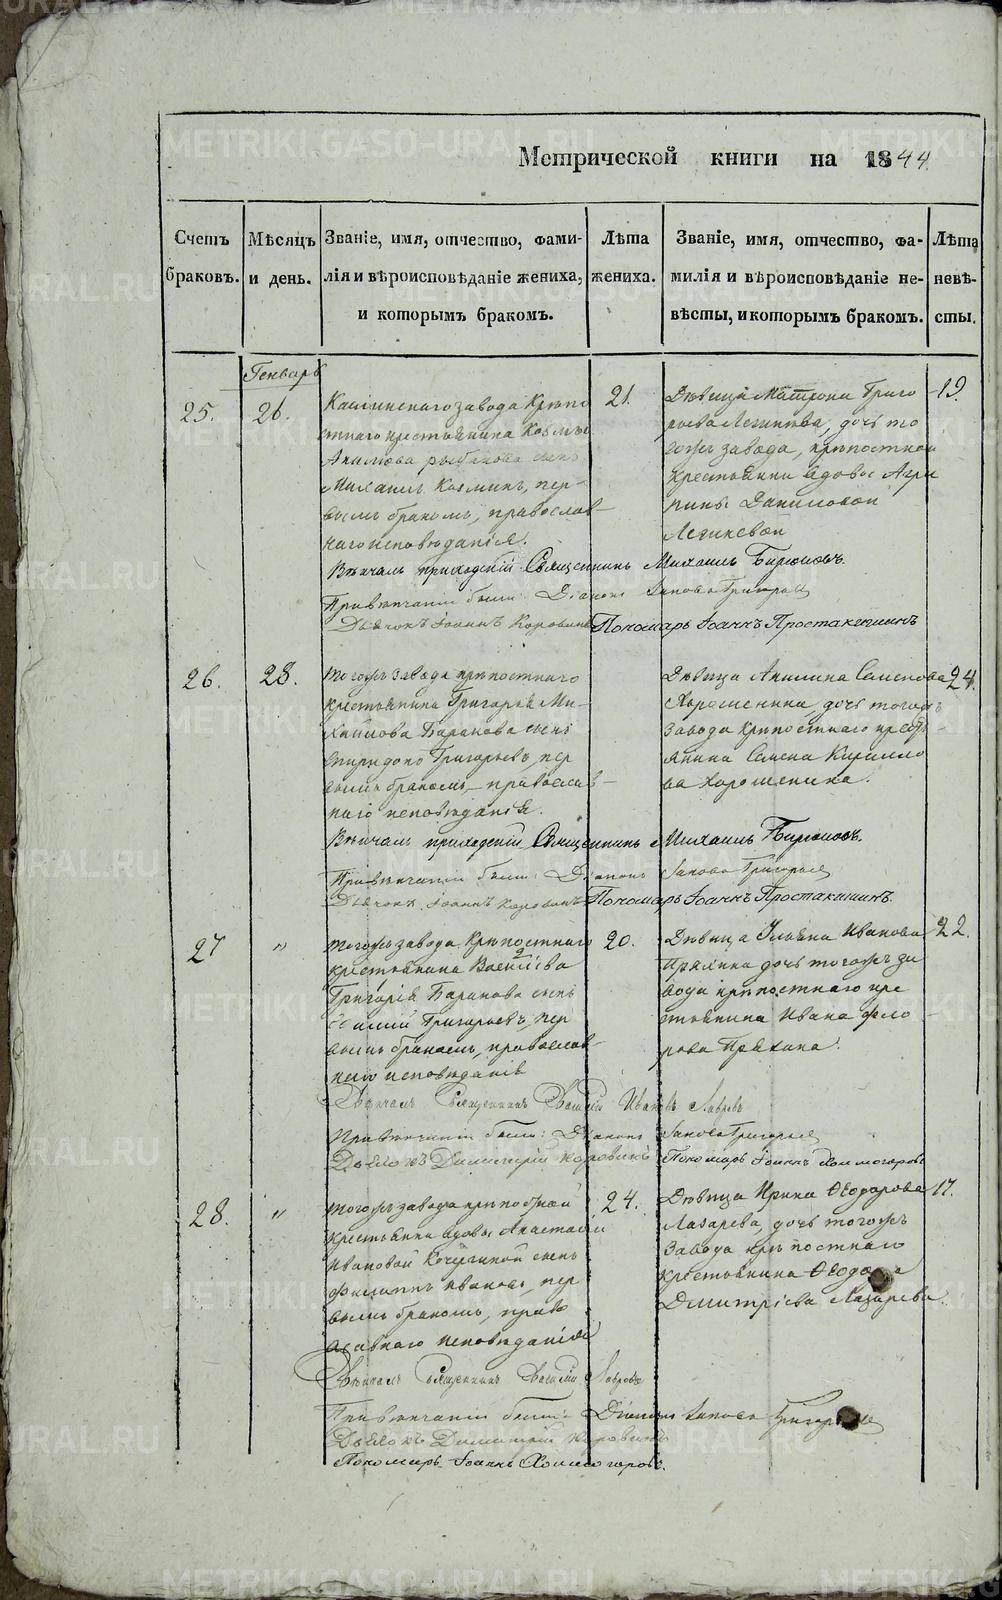 Метрической книги на 1844.
Счетъ браковъ.
Мѣсяцъ и день.
Званіе, имя, отчество, фами-
лія и вѣроисповѣданіе жениха,
и которымъ бракомъ.
Лѣта жениха.
Званіе, имя, отчество, фа-
милія и вѣроисповѣданіе не-
вѣсты, и которымъ бракомъ.
Лѣта невѣ-
сты.
Генварь
25.
26.
Каслинскаго завода Крѣпо
стнаго крестьянина Козмы
сынъ
Михаилъ Козминъ, пер-
вымъ бракомъ, православ-
наго исповѣданія.
21.
Дѣвица Матрона Григо
рьева, дочь то
гожъ завода, крѣпостной
крестьянки вдовы Агри
пины Даниловой
19.
Вѣнчалъ приходскій Священникъ Михаилъ Бирюковъ.
При вѣнчаніи были: Діаконъ Іаковъ Григорьев
Дьячокъ Іоаннъ Коровинъ Пономарь Іоаннъ Простакишинъ
26.
28.
тогожъ завода крѣпостнаго
крестьянина Григорья Ми-
хайлова Баранова сынъ
Спиридонъ Григорьевъ, пер
вымъ бракомъ, православ-
наго исповѣданія.
Дѣвица Акилина Семенова
Хорошенина, дочь тогожъ
завода крѣпостнаго кресть-
янина Семена Кирилло
ва Хорошенина.
24.
Вѣнчалъ приходскій Священникъ Михаилъ Бирюковъ.
При вѣнчаніи были: Діаконъ Іаковъ Григорьев
Дьячокъ Іоаннъ Коровинъ Пономарь Іоаннъ Простакишинъ.
27
"
тогожъ завода Крѣпостнаго
крестьянина
Григорія Баранова сынъ
Григорьевъ, пер
вымъ бракомъ, православ-
наго исповѣданія
20.
Дѣвица Ульяна Иванова
Пряхина дочь тогожъ за
вода крѣпостнаго кре
стьянина Ивана Фело
рова Пряхина.
22.
Вѣнчалъ Священникъ Василій Ивановъ Лавровъ
При вѣнчаніи были: Діаконъ Іаковъ Григорьев
Дьячокъ Димитрій Коровинъ Пономарь Іоаннъ Холмогоровъ
28.
"
тогожъ завода крѣпостной
крестьянки вдовы Анастасіи
Ивановой Кочегиной сынъ
Филиппъ Ивановъ, пер
вымъ бракомъ, право
славнаго исповѣданія
24.
Дѣвица Ирина Ѳеодорова
Лазарева, дочь тогожъ
завода крѣпостнаго
крестьянина
Димитріева Лазарева.
17.
Вѣнчалъ Священникъ Василій Лавровъ
При вѣнчаніи были: Діаконъ Іаковъ
Дьячокъ Димитрій Коровинъ
Пономарь Іоаннъ Холмогоровъ.
METRIKI.GASO-URAL.RU